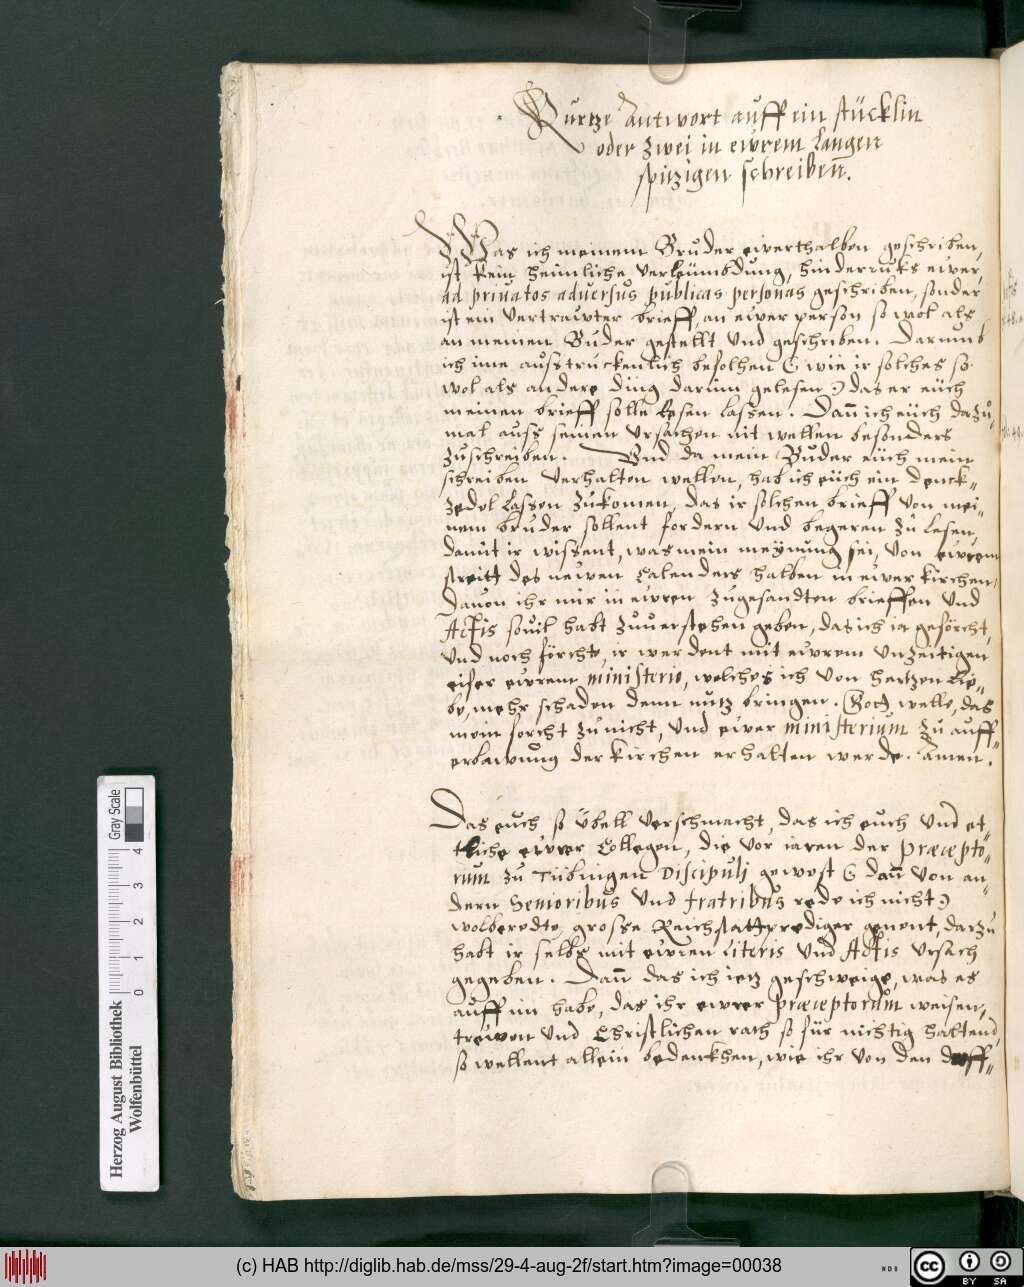 Kurtze Antwort auff ein stücklin
oder zwei in ewrem Langen
spitzigen schreibenn.
Was ich meinem Bruder ewerthalben geschriben,
ist kein heimliche verleümbdung, hinderruks ewer,
ad priuatos aduersus publicas personas geschriben, sonder
ist ein vertrauwter brieff, an ewer person so wol als
an meinen Buder gestellt und geschriben. Darumb
ich ime ausstruckenlich befolhen (wie ir solches so
wol als andere ding darim gelesen) das er eüch
meinen brieff solle lesen lassen. Dan̄ ich eüch dazů
mal auss seinen ursachen nit wellen besonders
zuschreiben. Und da mein Buder eüch mein
schreiben verhalten wellen, hab ich eüch ein denck„
zedel lassen zukomen, das ir solchen brieff von mei„
nem bruder sollent fordern und begeren zu lesen,
damit ir wissent, was mein meÿnung sei, von ewrem
streitt des newen Calenders halben in ewer kirchen,
Dauon ihr mir in ewren zugesandten brieffen und
Actis souil habt zuuerstehen geben, das ich ia geförcht,
und noch förchte, ir werdent mit ewrem unzeitigen
eifer ewrem ministerio, welches ich von hertzen lie„
be, mehr schaden denn nutz bringen. Gott welle, das
mein forcht zu nicht, und ewer ministerium zu auff„
erbawung der kirchen erhalten werde. Amen.
Das euch so übell verschmacht, das ich euch und et„
tliche ewrer Collegen, die vor iaren der præcepto„
rum zu Tübingen Discipuli gewest (dan̄ von an„
dern Senioribus und fratribus rede ich nicht)
wolberedte, grosse Reichstattprediger genent, darzu
habt ir selbs mit ewren literis und Actis ursach
gegeben. Dan̄ das ich ietz geschweige, was es
auff im habe, das ihr ewrer præceptorum weisen,
trewen und Christlichen rath so für nichtig haltend,
so wellent allein bedenckhen, wie ihr von den
Herzog August Bibliothek
Wolfenbüttel
0 1 2 3 4
Gray Scale
(c) HAB http://diglib.hab.de/mss/29-4-aug-2f/start.htm?image=00038
WDB
cc BY SA